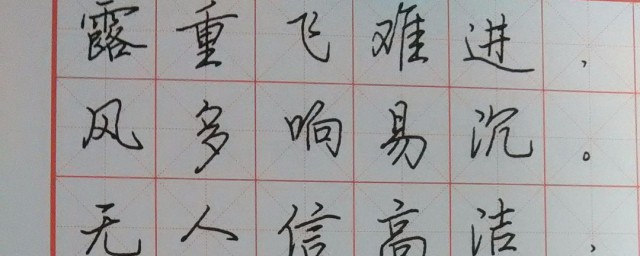 露重飞难进，
风多响易沉。
无人信高洁，